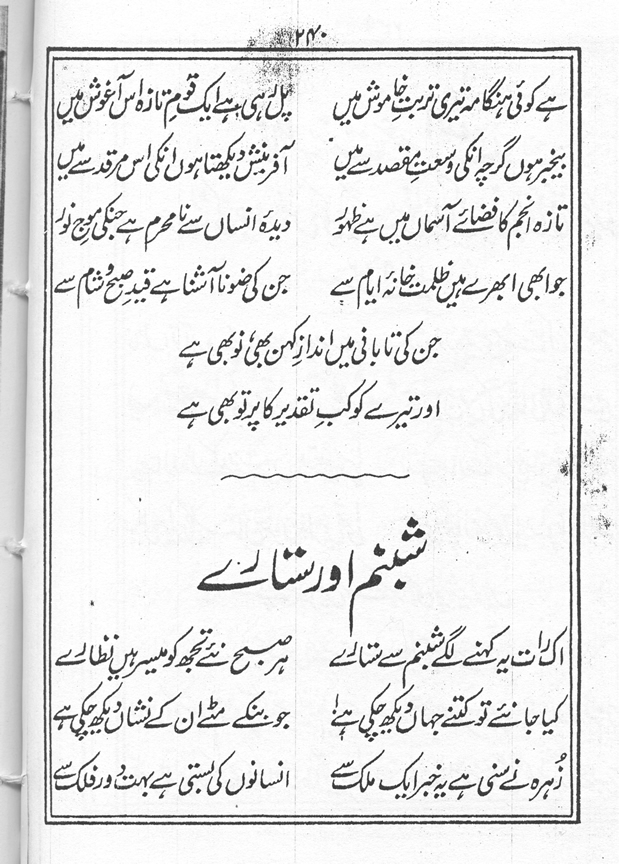 ۲۴۰
ہے کوئی ہنگامہ تیری تربتِ خاموش میں پل رہی ہے ایک قومِ تازہ اس آغوش میں
بیخبر ہوں گرچہ انکی وسعتِ مقصد سے میں آفرینش دیکھتا ہوں انکی اس مرقد سے میں
تازہ انجم کا فضائے آسماں میں ہے ظہور دیدۂ انساں سے نامحرم ہے جنکی موجِ نور
جو ابھی ابھرے ہیں ظلمت خانۂ ایام سے جن کی ضو ناآشنا ہے قیدِ صبح و شام سے
جن کی تابانی میں اندازِ کہن بھی، نو بھی ہے
اور تیرے کوکبِ تقدیر کا پرتو بھی ہے
شبنم اور ستارے
اک رات یہ کہنے لگے شبنم سے ستارے ہر صبح نئے تجھ کو میسر ہیں نظارے
کیا جانئے تو کتنے جہاں دیکھ چکی ہے! جو بنکے مٹے ان کے نشاں دیکھ چکی ہے
زُہرہ نے سنی ہے یہ خبر ایک ملک سے انسانوں کی بستی ہے بہت دور فلک سے